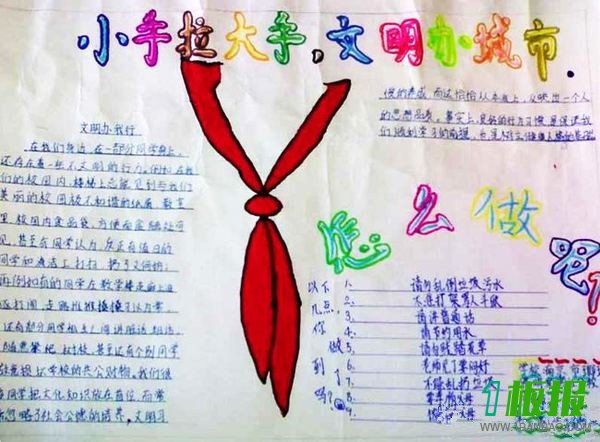 小手拉大手,文明办城市.
文明办我行.
在我们身边,在一部分同学身上,
还存在着一些不文明的行为。例如在我
们的校园内,楼梯上总能见到与我们
美丽的校园极不和谐的纸屑,教室
里、校园内食品袋、方便面盒随处可
见,甚至有同学认为,反正有值日的
同学和清洁工打扫,扔了又何妨;
再例如有的同学在教学楼走廊上追
逐打闹,走路推推搡搡习以为常
还有部分同学相互之间讲脏话、粗话,
随意攀爬树枝,甚至还有个别同学
故意损坏学校的公共财物。我们很
多同学把文化知识放在首位而常
忽略了社会公德的培养,文明习
惯的养成,而这恰恰从本质上,反映出一个人
的思想品质。事实上,良好的行为习惯,是保证我
们顺利学习的前提,也是树立健康人格的基础
怎么做呢?
以下几点你做到了吗?
1、请勿乱倒垃圾污水
2、不准打架骂人斗殴
3、请讲普通话
4、请节约用水
5、请勿践踏花草
6、老师见了要问好
7、不准乱扔垃圾
8、要孝敬父母
9、父母
学校
1板报
WWW.1BANBAO.COM